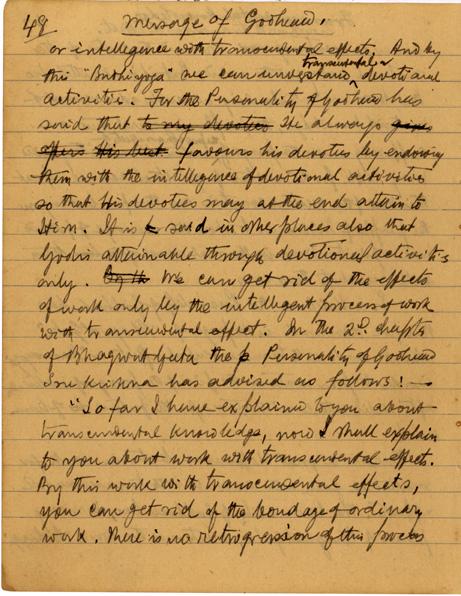 49 Message of Godhead.
or intelligence with transcendental effects. And by
this "Budhiyoga" we can understand transcendental devotional
activities. For the Personality of Godhead has
said that to my devotees He always gives
offers His best favours his devotees by endowing
them with the intelligence of devotional activities
so that His devotees may at the end attain to
Him. It is said in other places also that
God is attainable through devotional activities
only. By th We can get rid of the effects
of work only by the intelligent process of work
with transcendental effect. In the 2nd chapter
of Bhagwat Gita the Personality of Godhead
Sree Krishna has advised as follows! —
"So far I have explained to you about
transcendental knowledge, now I shall explain
to you about work with transcendental effects.
By this work with transcendental effects,
you can get rid of the bondage of ordinary
work. There is no retrogression of this process